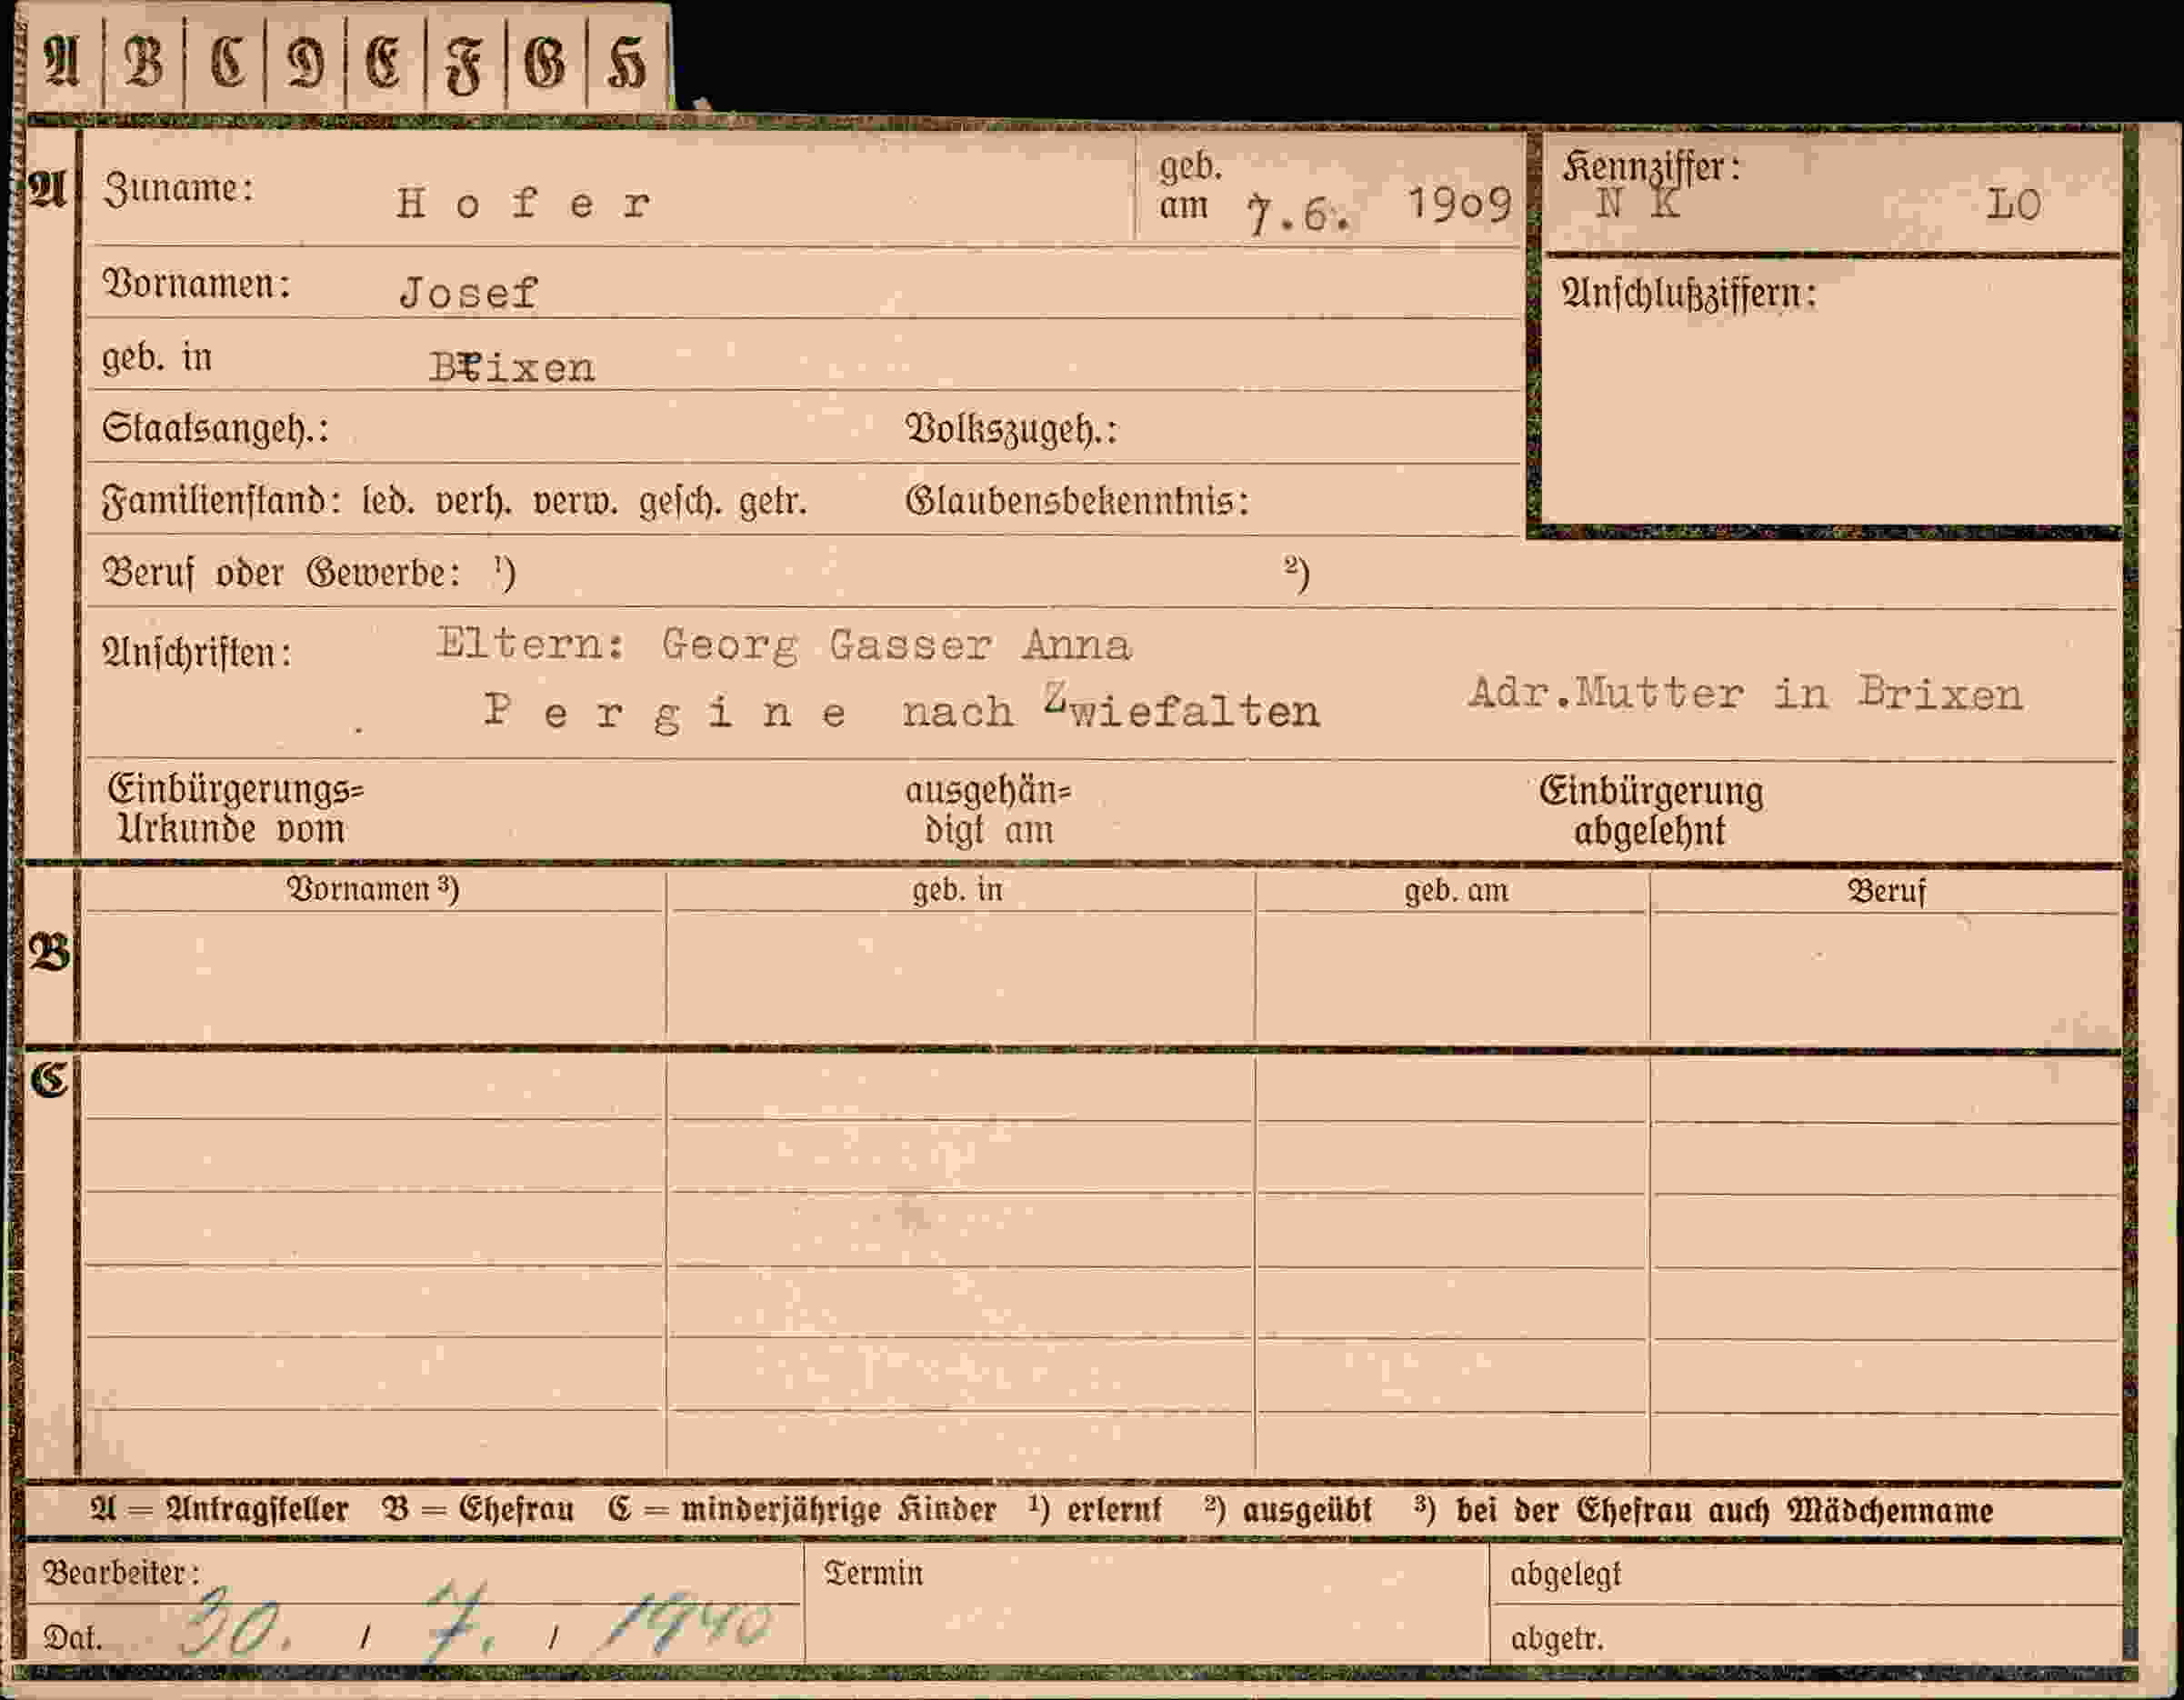 A B C D E F G H
A Zuname: Hofer geb. am 7.6. 1909 Kennziffer: N K LO
Vornamen: Josef Anschlußziffern:
geb. in Brixen
Staatsangeh.: Volkszugeh.:
Familienstand: led. verh. verw. gesch. getr. Glaubensbekenntnis:
Beruf oder Gewerbe: ¹) ²)
Anschriften: Eltern: Georg Gasser Anna
Pergine nach Zwiefalten Adr.Mutter in Brixen
Einbürgerungs= ausgehän= Einbürgerung
Urkunde vom digt am abgelehnt
Vornamen ³) geb. in geb. am Beruf
B
C
A = Antragsteller B = Ehefrau C = minderjährige Kinder ¹) erlernt ²) ausgeübt ³) bei der Ehefrau auch Mädchenname
Bearbeiter: Termin abgelegt
Dat. 30. / 7. / 1940 abgetr.